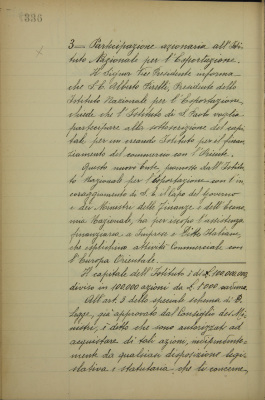 336
3 — Partecipazione azionaria all'Isti-
tuto Nazionale per l'Esportazione.
Il Signor Vice Presidente informa
che S. E. Alberto Pirelli, Presidente dello
Istituto Nazionale per l'Esportazione,
chiede che l'Istituto di S. Paolo voglia
partecipare alla sottoscrizione del capi-
tale per un creando Istituto per il finan-
ziamento del commercio con l'Oriente.
Questo nuovo Ente, promosso dall'Istitu-
to Nazionale per l'Esportazione con l'in-
coraggiamento di S. E. il Capo del Governo
e dei Ministri delle Finanze e dell'Econo-
mia Nazionale, ha per iscopo l'assistenza
finanziaria a Imprese e Ditte Italiane,
che esplichino attività Commerciale con
l'Europa Orientale.
Il capitale dell'Istituto è di £ 100.000.000
diviso in 100.000 azioni da £ 1000 caduna.
All'art. 3 dello speciale schema di D.
Legge, già approvato dal Consiglio dei Mi-
nistri, è detto che sono autorizzati ad
acquistare di tali azioni, indipendente-
mente da qualsiasi disposizione legi-
slativa e statutaria che lo concerne,